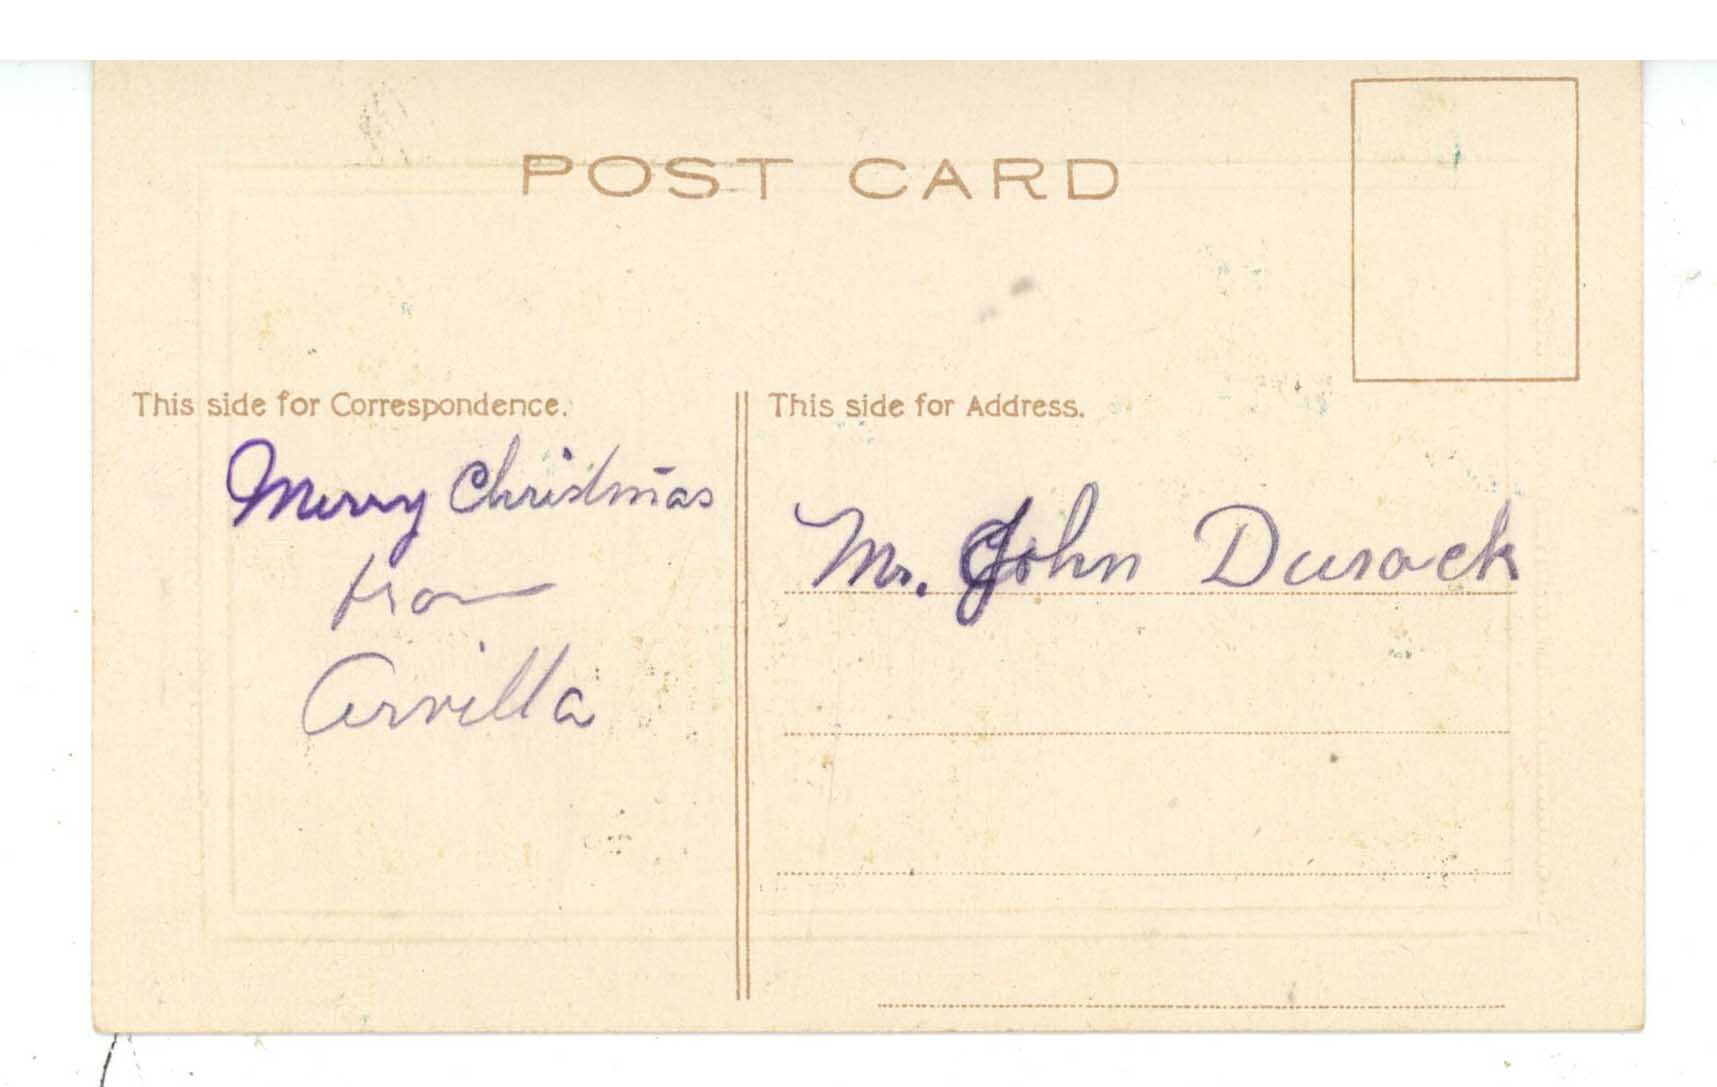 POST CARD
This side for Correspondence.
Merry Christmas
from
Arvilla
This side for Address.
Mr. John Durack